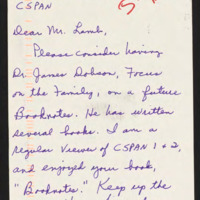 CSPAN
Dear Mr. Lamb,
Please consider having
Dr. James Dobson, Focus
on the Family, on a future
Booknotes. He has written
several books. I am a
regular viewer of CSPAN 1 & 2,
and enjoyed your book,
"Booknotes." Keep up the